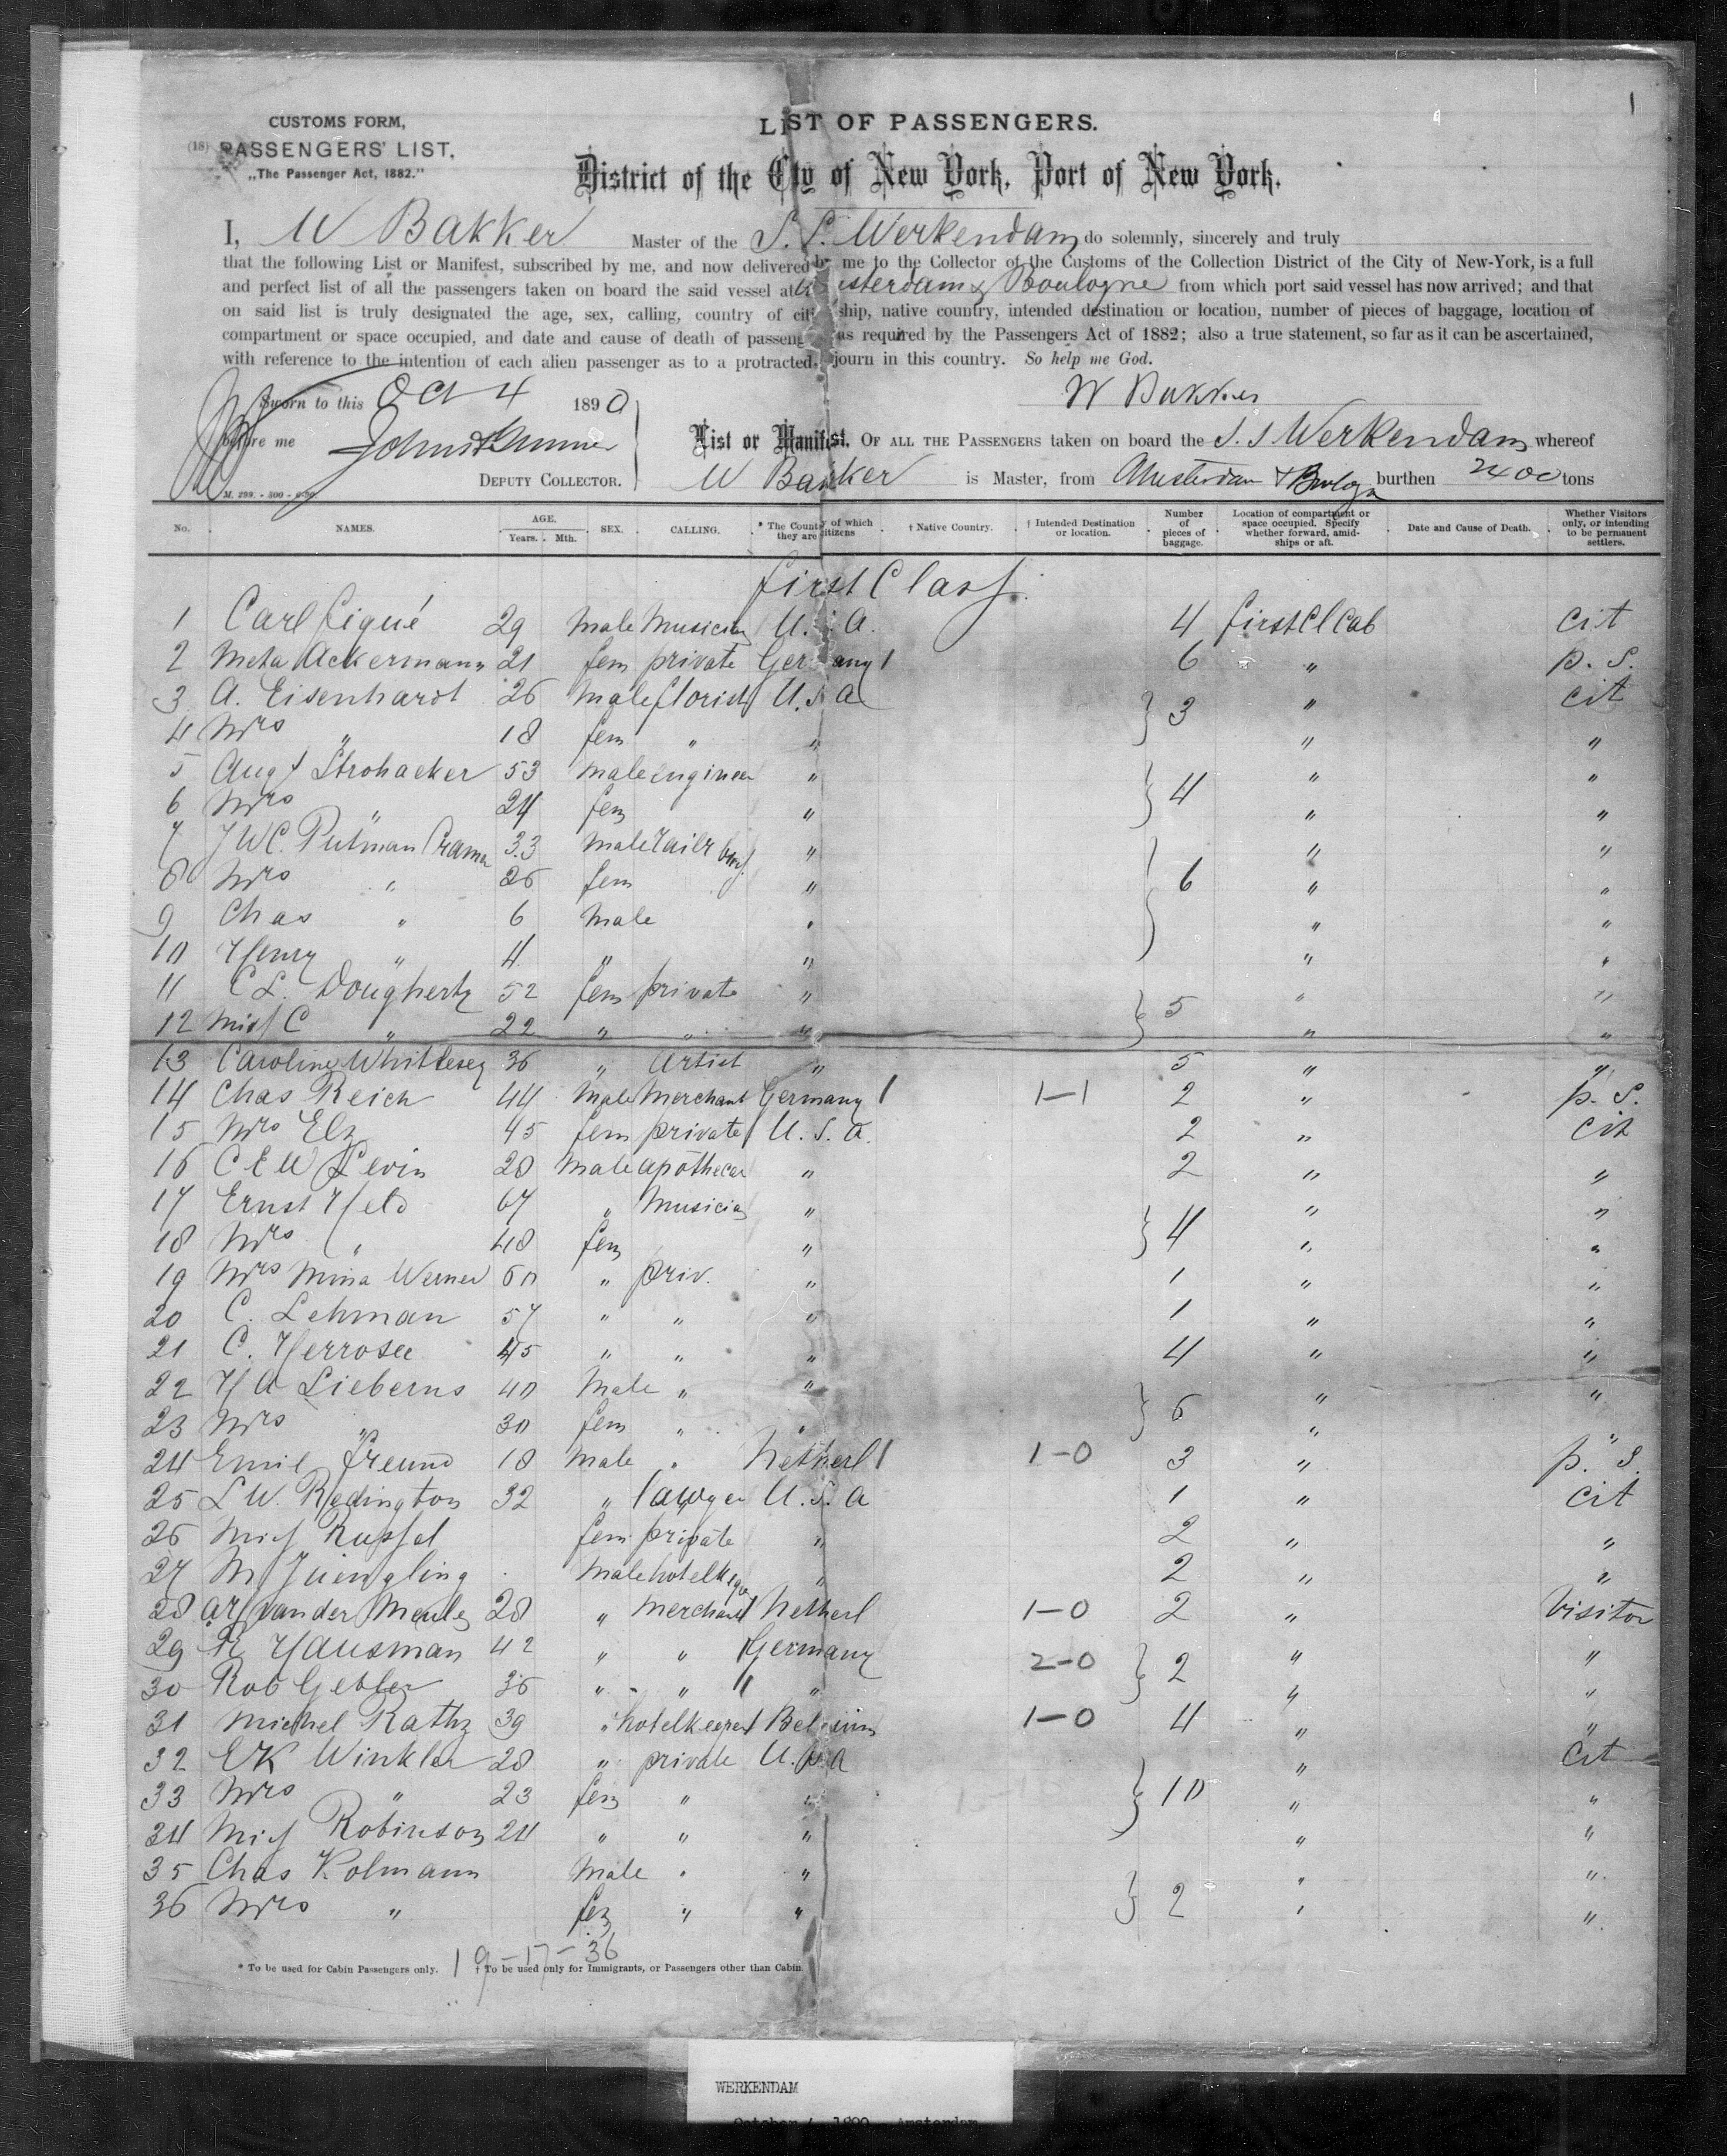 1
CUSTOMS FORM,
(18) PASSENGERS' LIST,
„The Passenger Act, 1882."
LIST OF PASSENGERS.
District of the City of New York, Port of New York.
I, W Bakker Master of the S. S. Werkendam do solemnly, sincerely and truly
that the following List or Manifest, subscribed by me, and now delivered by me to the Collector of the Customs of the Collection District of the City of New-York, is a full
and perfect list of all the passengers taken on board the said vessel at sterdam & Boulogne from which port said vessel has now arrived; and that
on said list is truly designated the age, sex, calling, country of cit ship, native country, intended destination or location, number of pieces of baggage, location of
compartment or space occupied, and date and cause of death of passeng as required by the Passengers Act of 1882; also a true statement, so far as it can be ascertained,
with reference to the intention of each alien passenger as to a protracted journ in this country. So help me God.
W Bakker
Sworn to this Oct 4 1890
before me
DEPUTY COLLECTOR.
M. 299. - 500 -
List or Manifest. OF ALL THE PASSENGERS taken on board the S. S Werkendam whereof
W Bakker is Master, from Amsterdam & Bologn burthen 2400 tons
No. NAMES. AGE. Years. Mth. SEX. CALLING. * The Country of which they are citizens † Native Country. † Intended Destination or location. Number of pieces of baggage. Location of compartment or space occupied. Specify whether forward, amidships or aft. Date and Cause of Death. Whether Visitors only, or intending to be permanent settlers.
First Class.
1 Carl Fiqué 29 Male Musician U. S. A. 4 First Cl Cab cit
2 Meta Ackermann 21 fem private Germany 1 6 " p. S.
3 A. Eisenhardt 26 Male florist U. S. A } 3 " cit
4 Mrs " 18 fem " " " "
5 Augt Strohacker 53 Male engineer " } 4 " "
6 Mrs " 24 fem " " "
7 J W C. Putman Cramer 33 Male " } 6 " "
8 Mrs " 26 fem " " "
9 Chas " 6 Male " " "
10 Henry " 4 " " " "
11 C L. Dougherty 52 fem private " } 5 " "
12 Miss C " 22 " " " " "
13 Caroline Whittlesey 36 " Artist " 5 " "
14 Chas Reich 44 Male Merchant Germany 1 1-1 2 " p. S.
15 Mrs Elz 45 fem private U. S. A. 2 " Cit
16 C E W Levin 20 Male apothecar " 2 " "
17 Ernst Held 67 " Musician " } 4 " "
18 Mrs " 48 fem " " "
19 Mrs Mina Werner 60 " priv. " 1 " "
20 C. Lehman 57 " " " 1 " "
21 C. Herrosee 45 " " " 4 " "
22 H A Lieberns 40 Male " " } 6 " "
23 Mrs " 30 fem " " " "
24 Emil Freund 18 Male " Netherl 1 1-0 3 " p. S.
25 L W. Redington 32 " lawyer U. S. A 1 " Cit
26 Miss Russel fem private " 2 " "
27 M Juengling Male hotelkeper " 2 " "
28 A H van der Meulen 28 " Merchant Netherl 1-0 2 " Visitor
29 R Hausman 42 " " Germany 2-0 } 2 " "
30 Rob Gebler 36 " " " " "
31 Michel Rathz 39 " hotelkeeper Belgium 1-0 4 " "
32 E K Winkler 28 " private U. S. A } 10 " Cit
33 Mrs " 23 fem " " " "
34 Miss Robinson 24 " " " " "
35 Chas Kolmann Male " " } 2 " "
36 Mrs " fem " " " "
19-17-36
* To be used for Cabin Passengers only. † To be used only for Immigrants, or Passengers other than Cabin.
WERKENDAM
October 4, 1890 Amsterdam